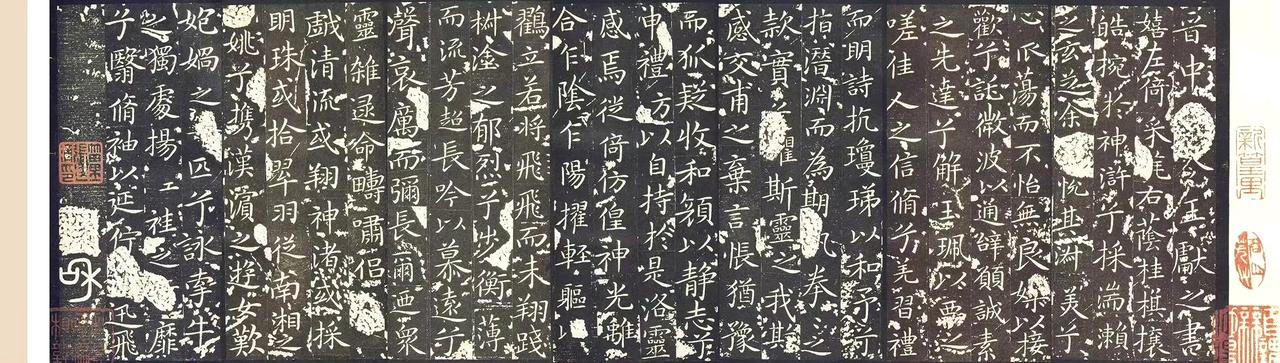 晉中令王獻之書
嬉左倚采旄右蔭桂旗攘
皓捥於神滸兮採湍瀨
之玄芝余悅其淑美兮
心振蕩而不怡無良媒以接
歡兮託微波以通辭願誠素
之先達兮解玉珮以要之
嗟佳人之信脩兮羌習禮
而明詩抗瓊珶以和予兮
指潛淵而為期執拳之
款實兮懼斯靈之我欺
感交甫之棄言悵猶豫
而狐疑收和顏以靜志兮
申禮防以自持於是洛靈
感焉徙倚仿徨神光離
合乍陰乍陽擢輕軀以
鶴立若將飛飛而未翔踐
椒塗之郁烈兮步衡薄
而流芳超長吟以慕遠兮
聲哀厲而彌長爾迺眾
靈雜遝命疇嘯侶
戲清流或翔神渚或採
明珠或拾翠羽從南湘之
姚兮攜漢濱之遊女歎
妃媧之匹兮詠牽牛
之獨處揚袿之靡
兮翳脩袖以延佇迅飛